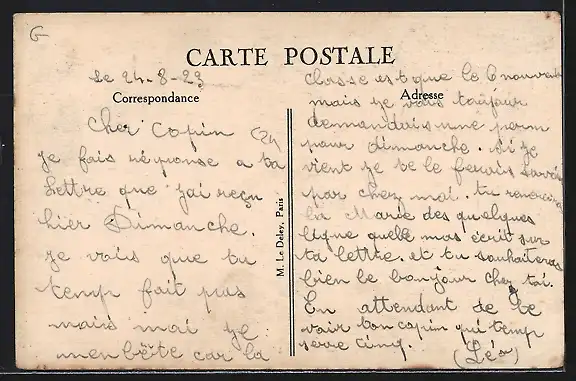 G
CARTE POSTALE
Le 24-8-23
Correspondance
Cher Copin
je fais réponse a ta
lettre que j'ai reçu
hier Dimanche.
je vais que tu
temp fait pas
mais mai je
menbète car la
M. Le Deley, Paris
Classe est que le 6 nouvemb
Adresse
mais je vais toujour
demandais une perm
pour dimanche. si je
vient je te le ferais savoir
par chez mai. tu remerciras
la Marie des quelques
ligne quele mas écrit sur
ta lettre. et tu souhaiteras
bien le bonjour chez tai.
En attendant de te
vair ton copin qui temp
serre cinq.
(Léon)